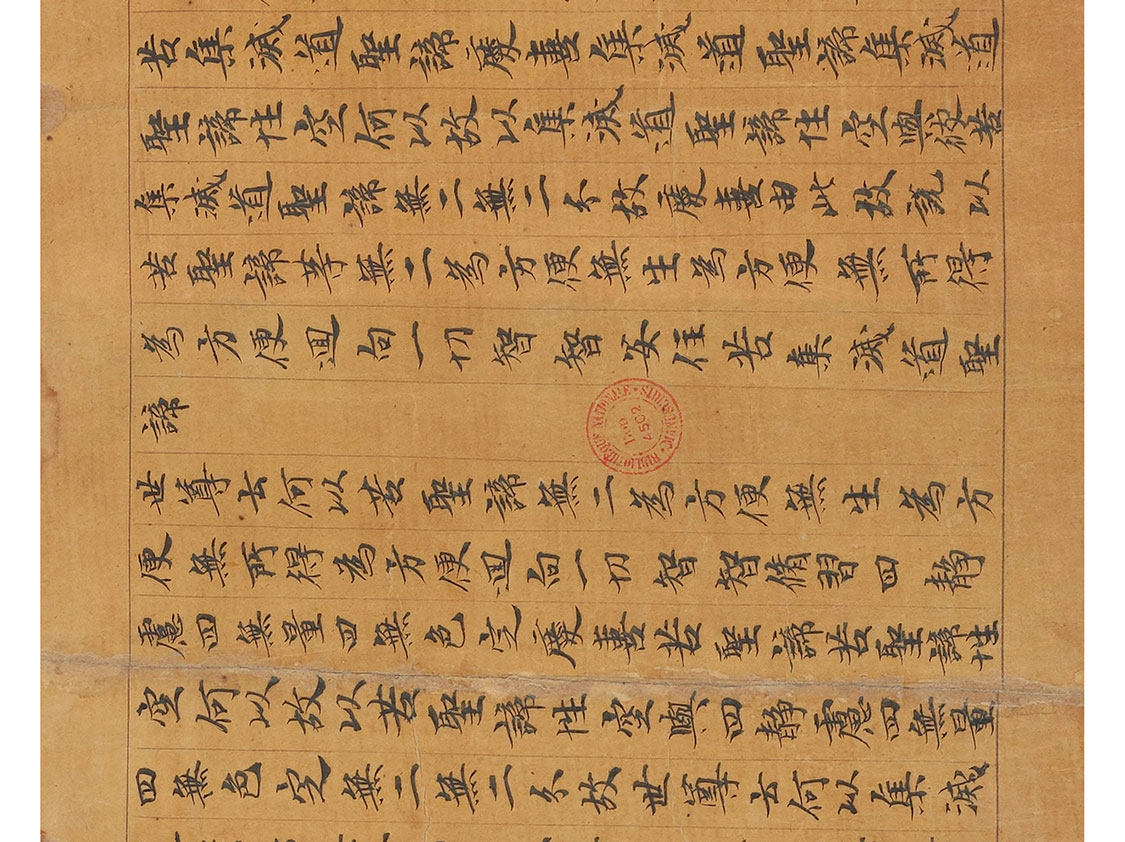 苦集滅道聖諦慶喜集滅道聖諦集滅道
聖諦性空何以故以集滅道聖諦性空與彼苦
集滅道聖諦無二無二分故慶喜由此故說以
苦聖諦等無二為方便無生為方便無所得
為方便迴向一切智智安住苦集滅道聖
諦
世尊云何以苦聖諦無二為方便無生為方
便無所得為方便迴向一切智智脩習四靜
慮四無量四無色定慶喜苦聖諦苦聖諦性
空何以故以苦聖諦性空與四靜慮四無量
四無色定無二無二分故世尊云何以集滅
BIBLIOTHÈQUE NATIONALE MANUSCRITS
Don 4502